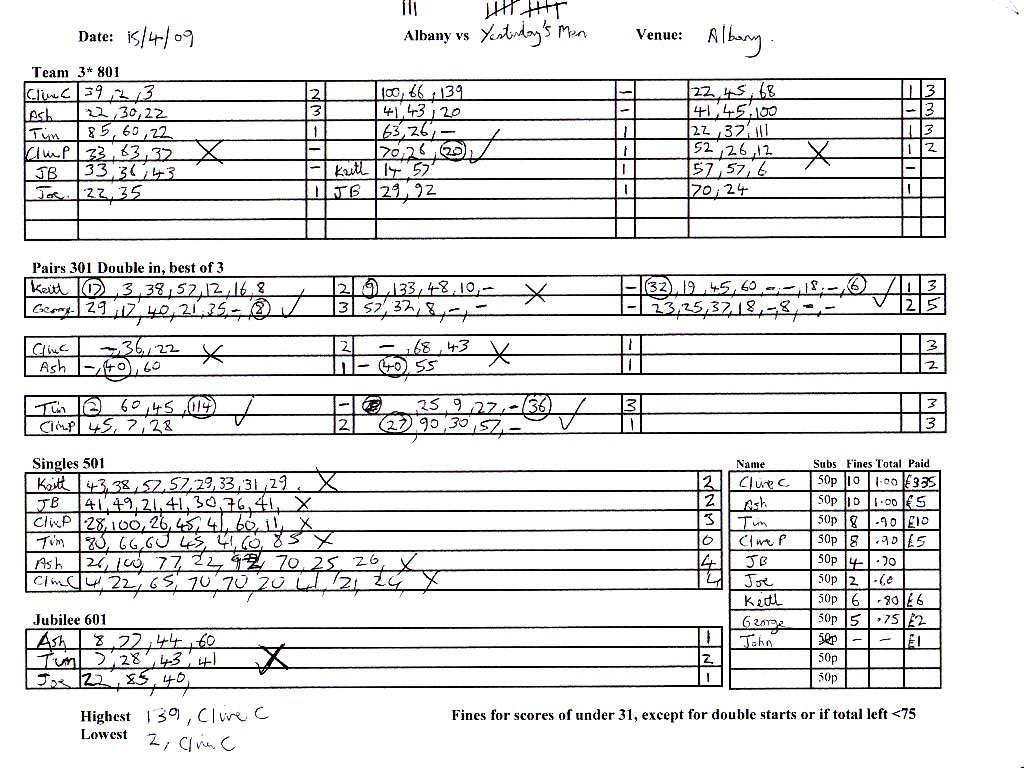 Date: 15/4/09 Albany vs Yesterday's Men Venue: Albany.
Team 3* 801
Clive C 39, 2, 3 2 100, 66, 139 – 22, 45, 68 1 3
Ash 22, 30, 22 3 41, 43, 20 – 41, 45, 100 – 3
Tim 85, 60, 22 1 63, 26, – 1 22, 37, 111 1 3
Clive P 33, 63, 37 – 70, 26, 20 1 52, 26, 12 1 2
JB 33, 36, 43 – Keith 14, 57 1 57, 57, 6 –
Joe. 22, 35 1 JB 29, 92 1 70, 24 1
Pairs 301 Double in, best of 3
Keith 17, 3, 38, 57, 12, 16, 8 2 9, 133, 48, 10, – – 32, 19, 45, 60, –, –, 18, –, 6 1 3
George 29, 17, 40, 21, 35, –, 8 3 57, 37, 8, –, – – 23, 25, 37, 18, –, 8, –, – 2 5
Clive C –, 36, 22 2 –, 68, 43 1 3
Ash –, 40, 60 1 – 40, 55 1 2
Tim 2 60, 45, 114 – 25, 9, 27, – 36 3 3
Clive P 45, 7, 28 2 27, 90, 30, 57, – 1 3
Singles 501
Keith 43, 38, 57, 57, 29, 33, 31, 29. 2
JB 41, 49, 21, 41, 30, 76, 41, 2
Clive P 28, 100, 26, 45, 41, 60, 11, 3
Tim 80, 66, 60 45, 41, 60, 85 0
Ash 26, 100, 77, 22, 70, 25, 26, 4
Clive C 4, 22, 65, 70, 70, 20, 41, 21, 24, 4
Name Subs Fines Total Paid
Clive C 50p 10 1.00 £3.35
Ash 50p 10 1.00 £5
Tim 50p 8 .90 £10
Clive P 50p 8 .90 £5
JB 50p 4 .70
Joe 50p 2 .60
Keith 50p 6 .80 £6
George 50p 5 .75 £2
John 50p – – £1
50p
50p
Jubilee 601
Ash 8, 77, 44, 60 1
Tim 7, 28, 43, 41 2
Joe 22, 85, 40, 1
Highest 139, Clive C
Lowest 2, Clive C
Fines for scores of under 31, except for double starts or if total left <75